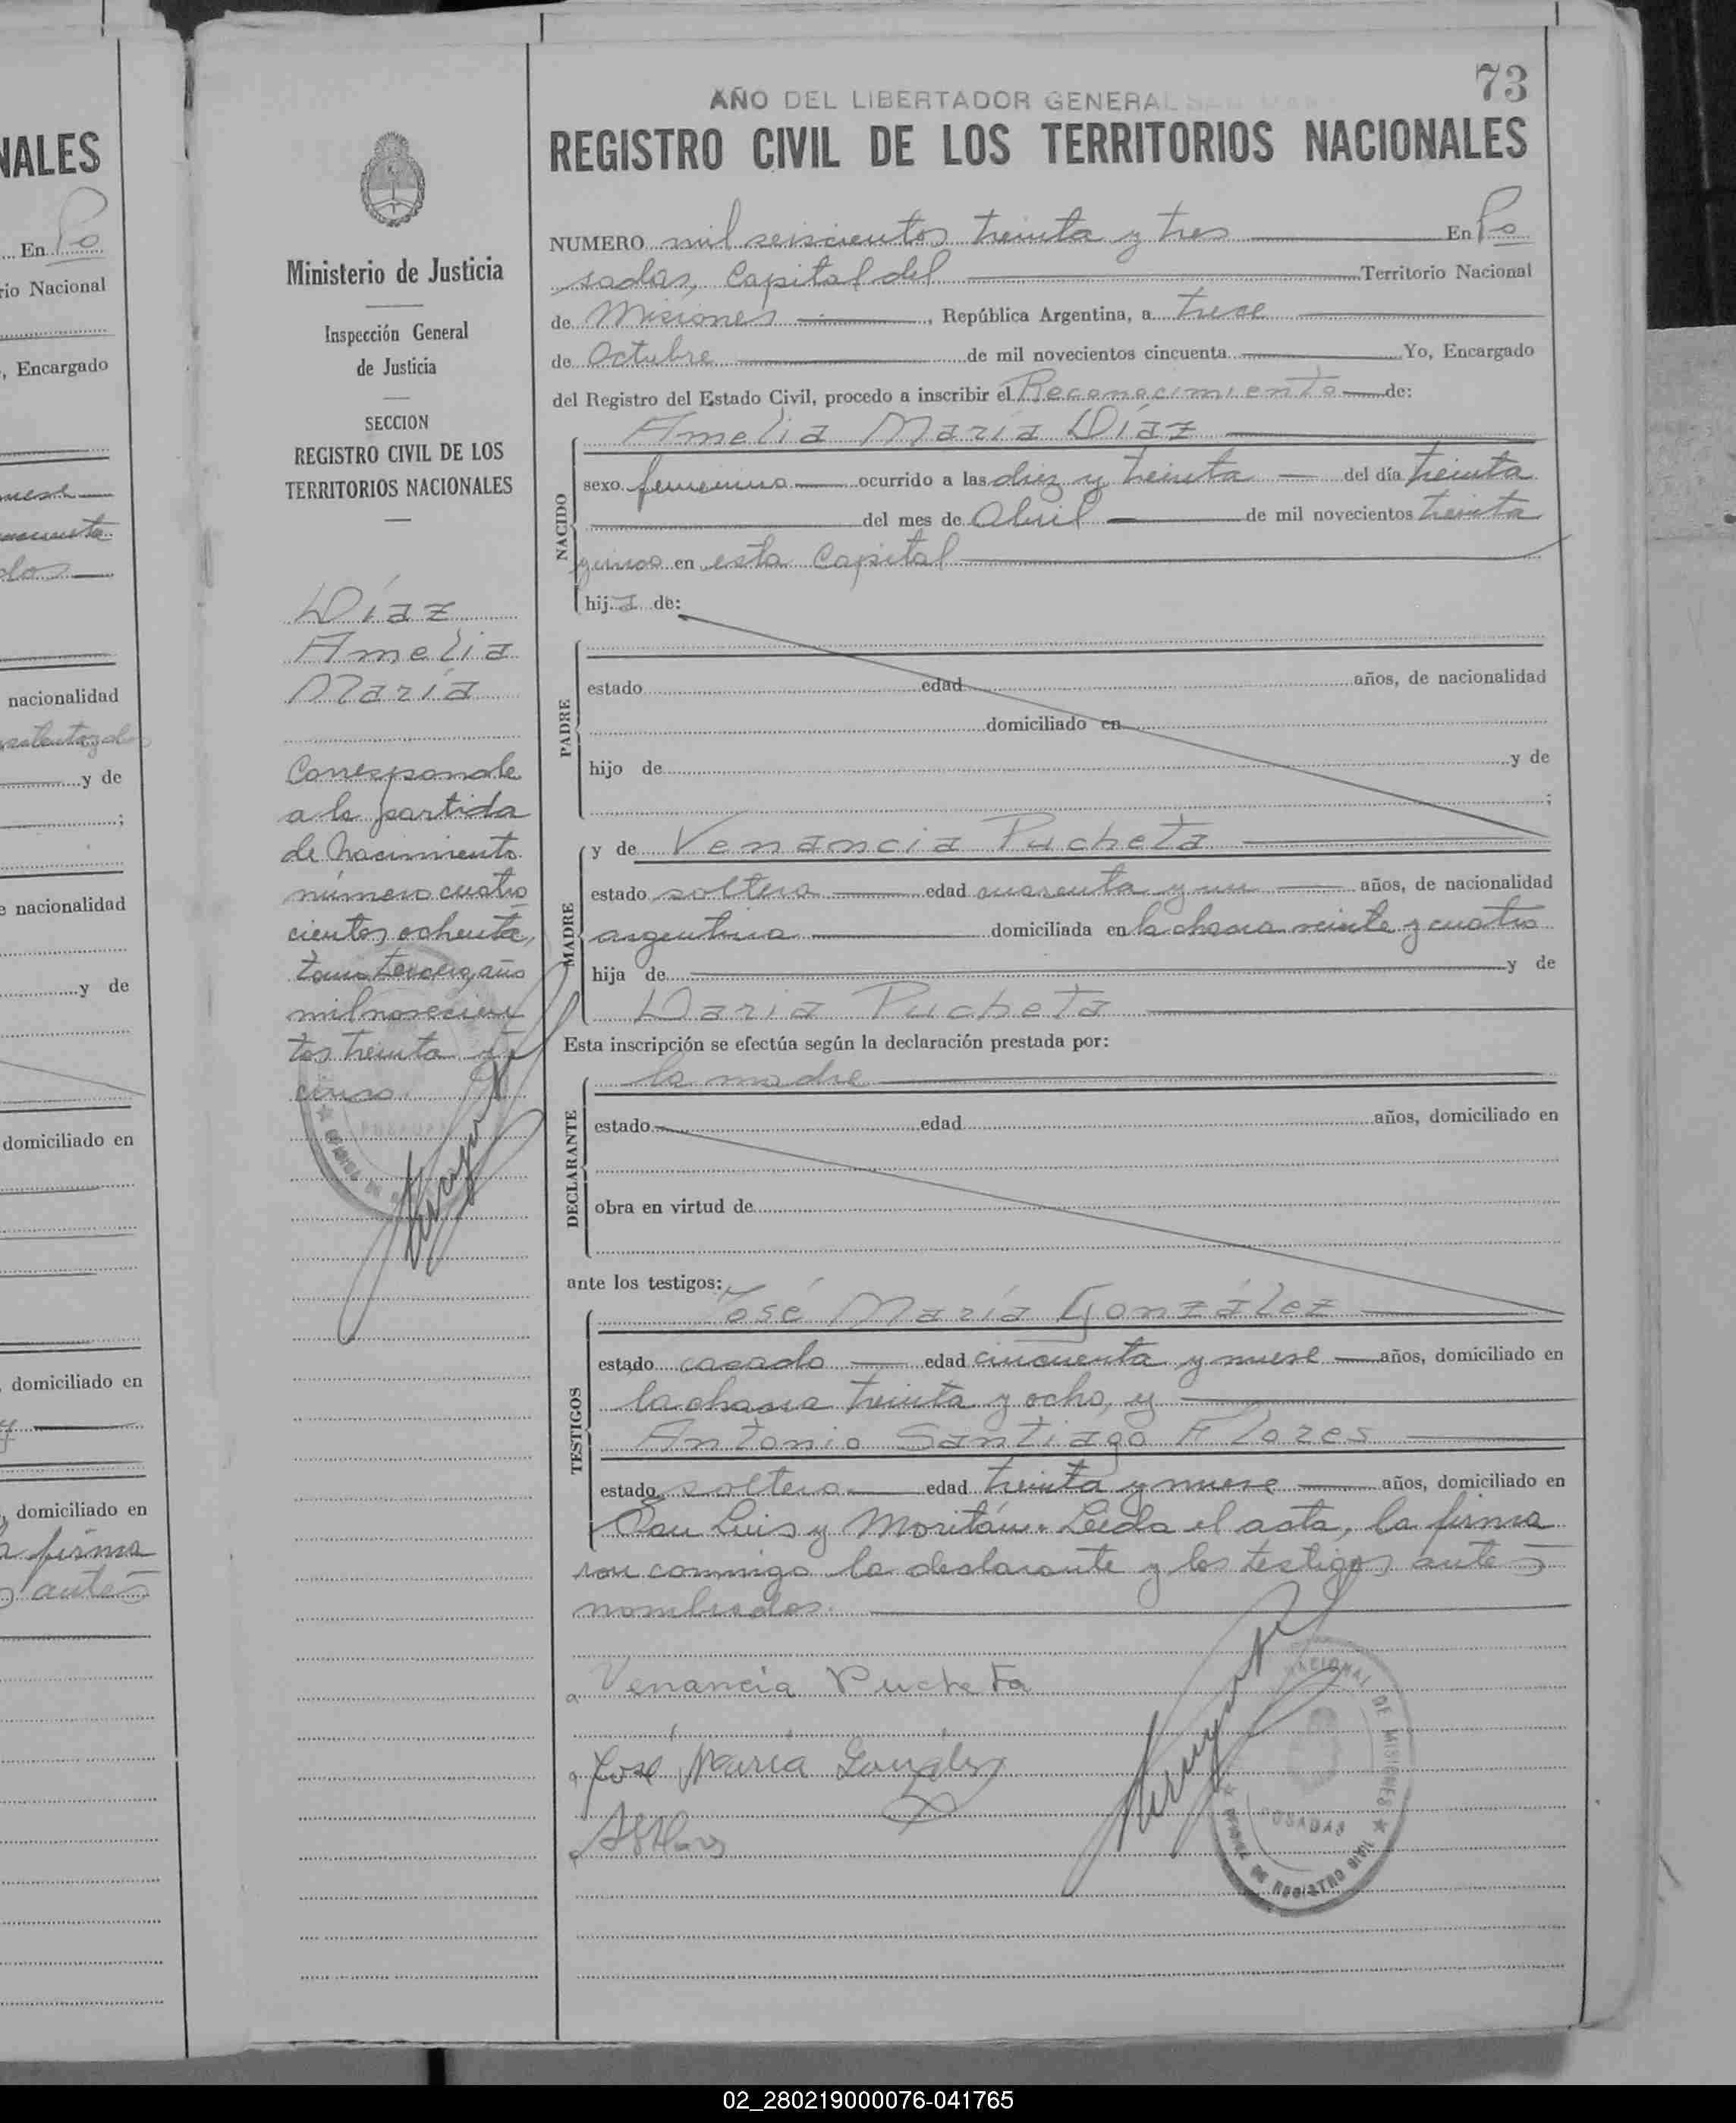 73
AÑO DEL LIBERTADOR GENERAL SAN MAR
REGISTRO CIVIL DE LOS TERRITORIOS NACIONALES
NUMERO mil seiscientos treinta y tres En Po
sadas, Capital del Territorio Nacional
de Misiones, República Argentina, a trece
de Octubre de mil novecientos cincuenta Yo, Encargado
del Registro del Estado Civil, procedo a inscribir el Reconocimiento de:
Amelia María Díaz
NACIDO
sexo femenino ocurrido a las diez y treinta del día treinta
del mes de Abril de mil novecientos treinta
en esta Capital
hija de:
PADRE
estado edad años, de nacionalidad
domiciliado en
hijo de y de
;
MADRE
y de Venancia Pucheta
estado soltera edad cuarenta y un años, de nacionalidad
argentina domiciliada en la chacra veinte y cuatro
hija de y de
Daria Pucheta
Esta inscripción se efectúa según la declaración prestada por:
DECLARANTE
la madre
estado edad años, domiciliado en
obra en virtud de
ante los testigos:
TESTIGOS
José María González
estado casado edad cincuenta y nueve años, domiciliado en
la chacra treinta y ocho, y
Antonio Santiago Flores
estado soltero edad treinta y nueve años, domiciliado en
San Luis y Moritán. Leida el acta, la firma
ron conmigo la declarante y los testigos antes
nombrados.
Venancia Pucheta
José María González
NACIONAL DE MISIONES
POSADAS
OFICINA DE REGISTRO CIVIL
Ministerio de Justicia
Inspección General
de Justicia
SECCION
REGISTRO CIVIL DE LOS
TERRITORIOS NACIONALES
Díaz
Amelia
María
Corresponde
a la partida
de Nacimiento
número cuatro
cientos ochenta,
tomo tercero, año
mil novecien
tos treinta y
cinco.
POSADAS
NALES
En Po
rio Nacional
, Encargado
nacionalidad
y de
;
e nacionalidad
y de
domiciliado en
, domiciliado en
y
, domiciliado en
a firma
s antes
02_280219000076-041765